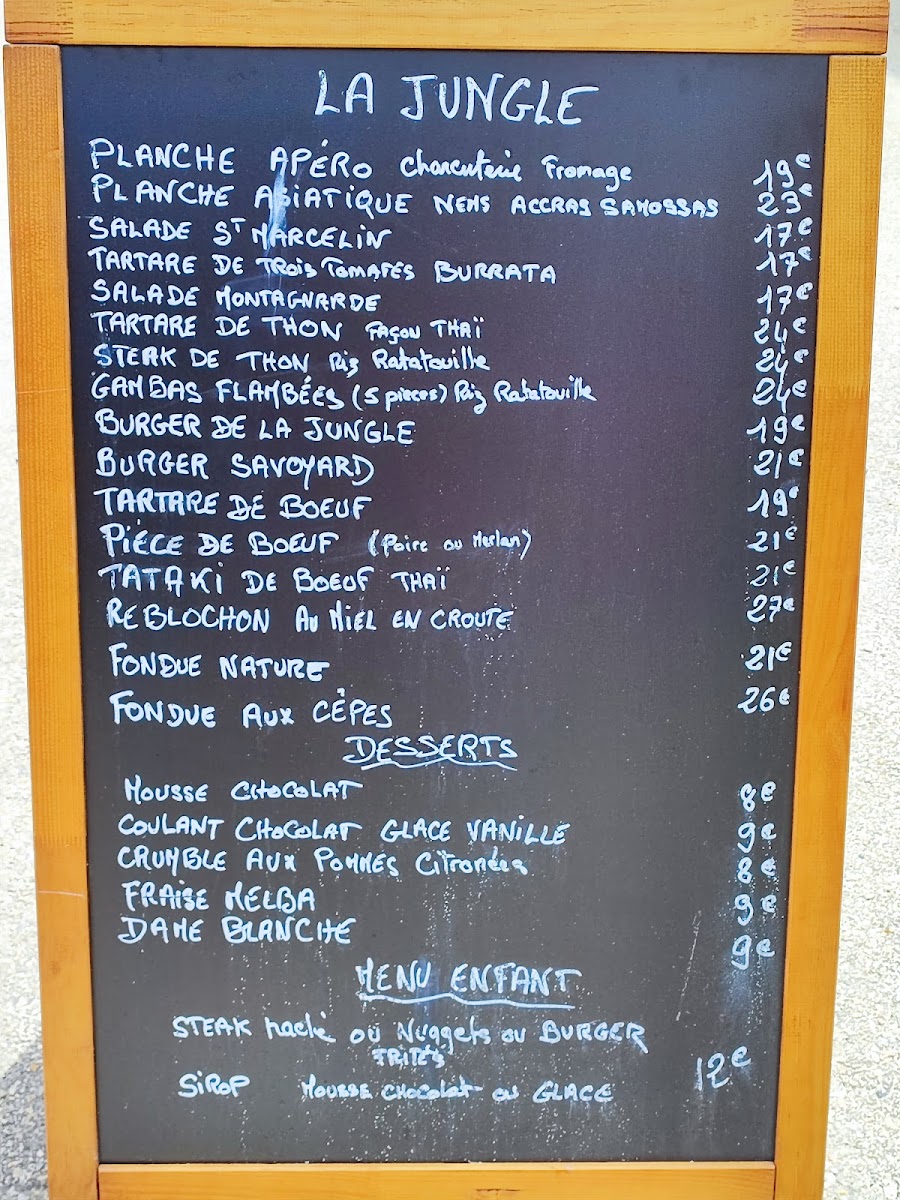 LA JUNGLE
PLANCHE APÉRO Charcuterie Fromage 19€
PLANCHE ASIATIQUE NEMS ACCRAS SAMOSSAS 23€
SALADE ST MARCELIN 17€
TARTARE DE TROIS TOMATES BURRATA 17€
SALADE MONTAGNARDE 17€
TARTARE DE THON FAÇON THAÏ 24€
STEAK DE THON Riz Ratatouille 24€
GAMBAS FLAMBÉES (5 pieces) Riz Ratatouille 24€
BURGER DE LA JUNGLE 19€
BURGER SAVOYARD 21€
TARTARE DE BOEUF 19€
PIÉCE DE BOEUF (Poire ou Merlan) 21€
TATAKI DE BOEUF THAÏ 21€
REBLOCHON AU MIEL EN CROUTE 27€
FONDUE NATURE 21€
FONDUE AUX CÈPES 26€
DESSERTS
MOUSSE CHOCOLAT 8€
COULANT CHOCOLAT GLACE VANILLE 9€
CRUMBLE AUX POMMES Citronées 8€
FRAISE MELBA 9€
DAME BLANCHE 9€
MENU ENFANT
STEAK haché ou Nuggets ou BURGER
FRITES
12€
SIROP MOUSSE CHOCOLAT ou GLACE